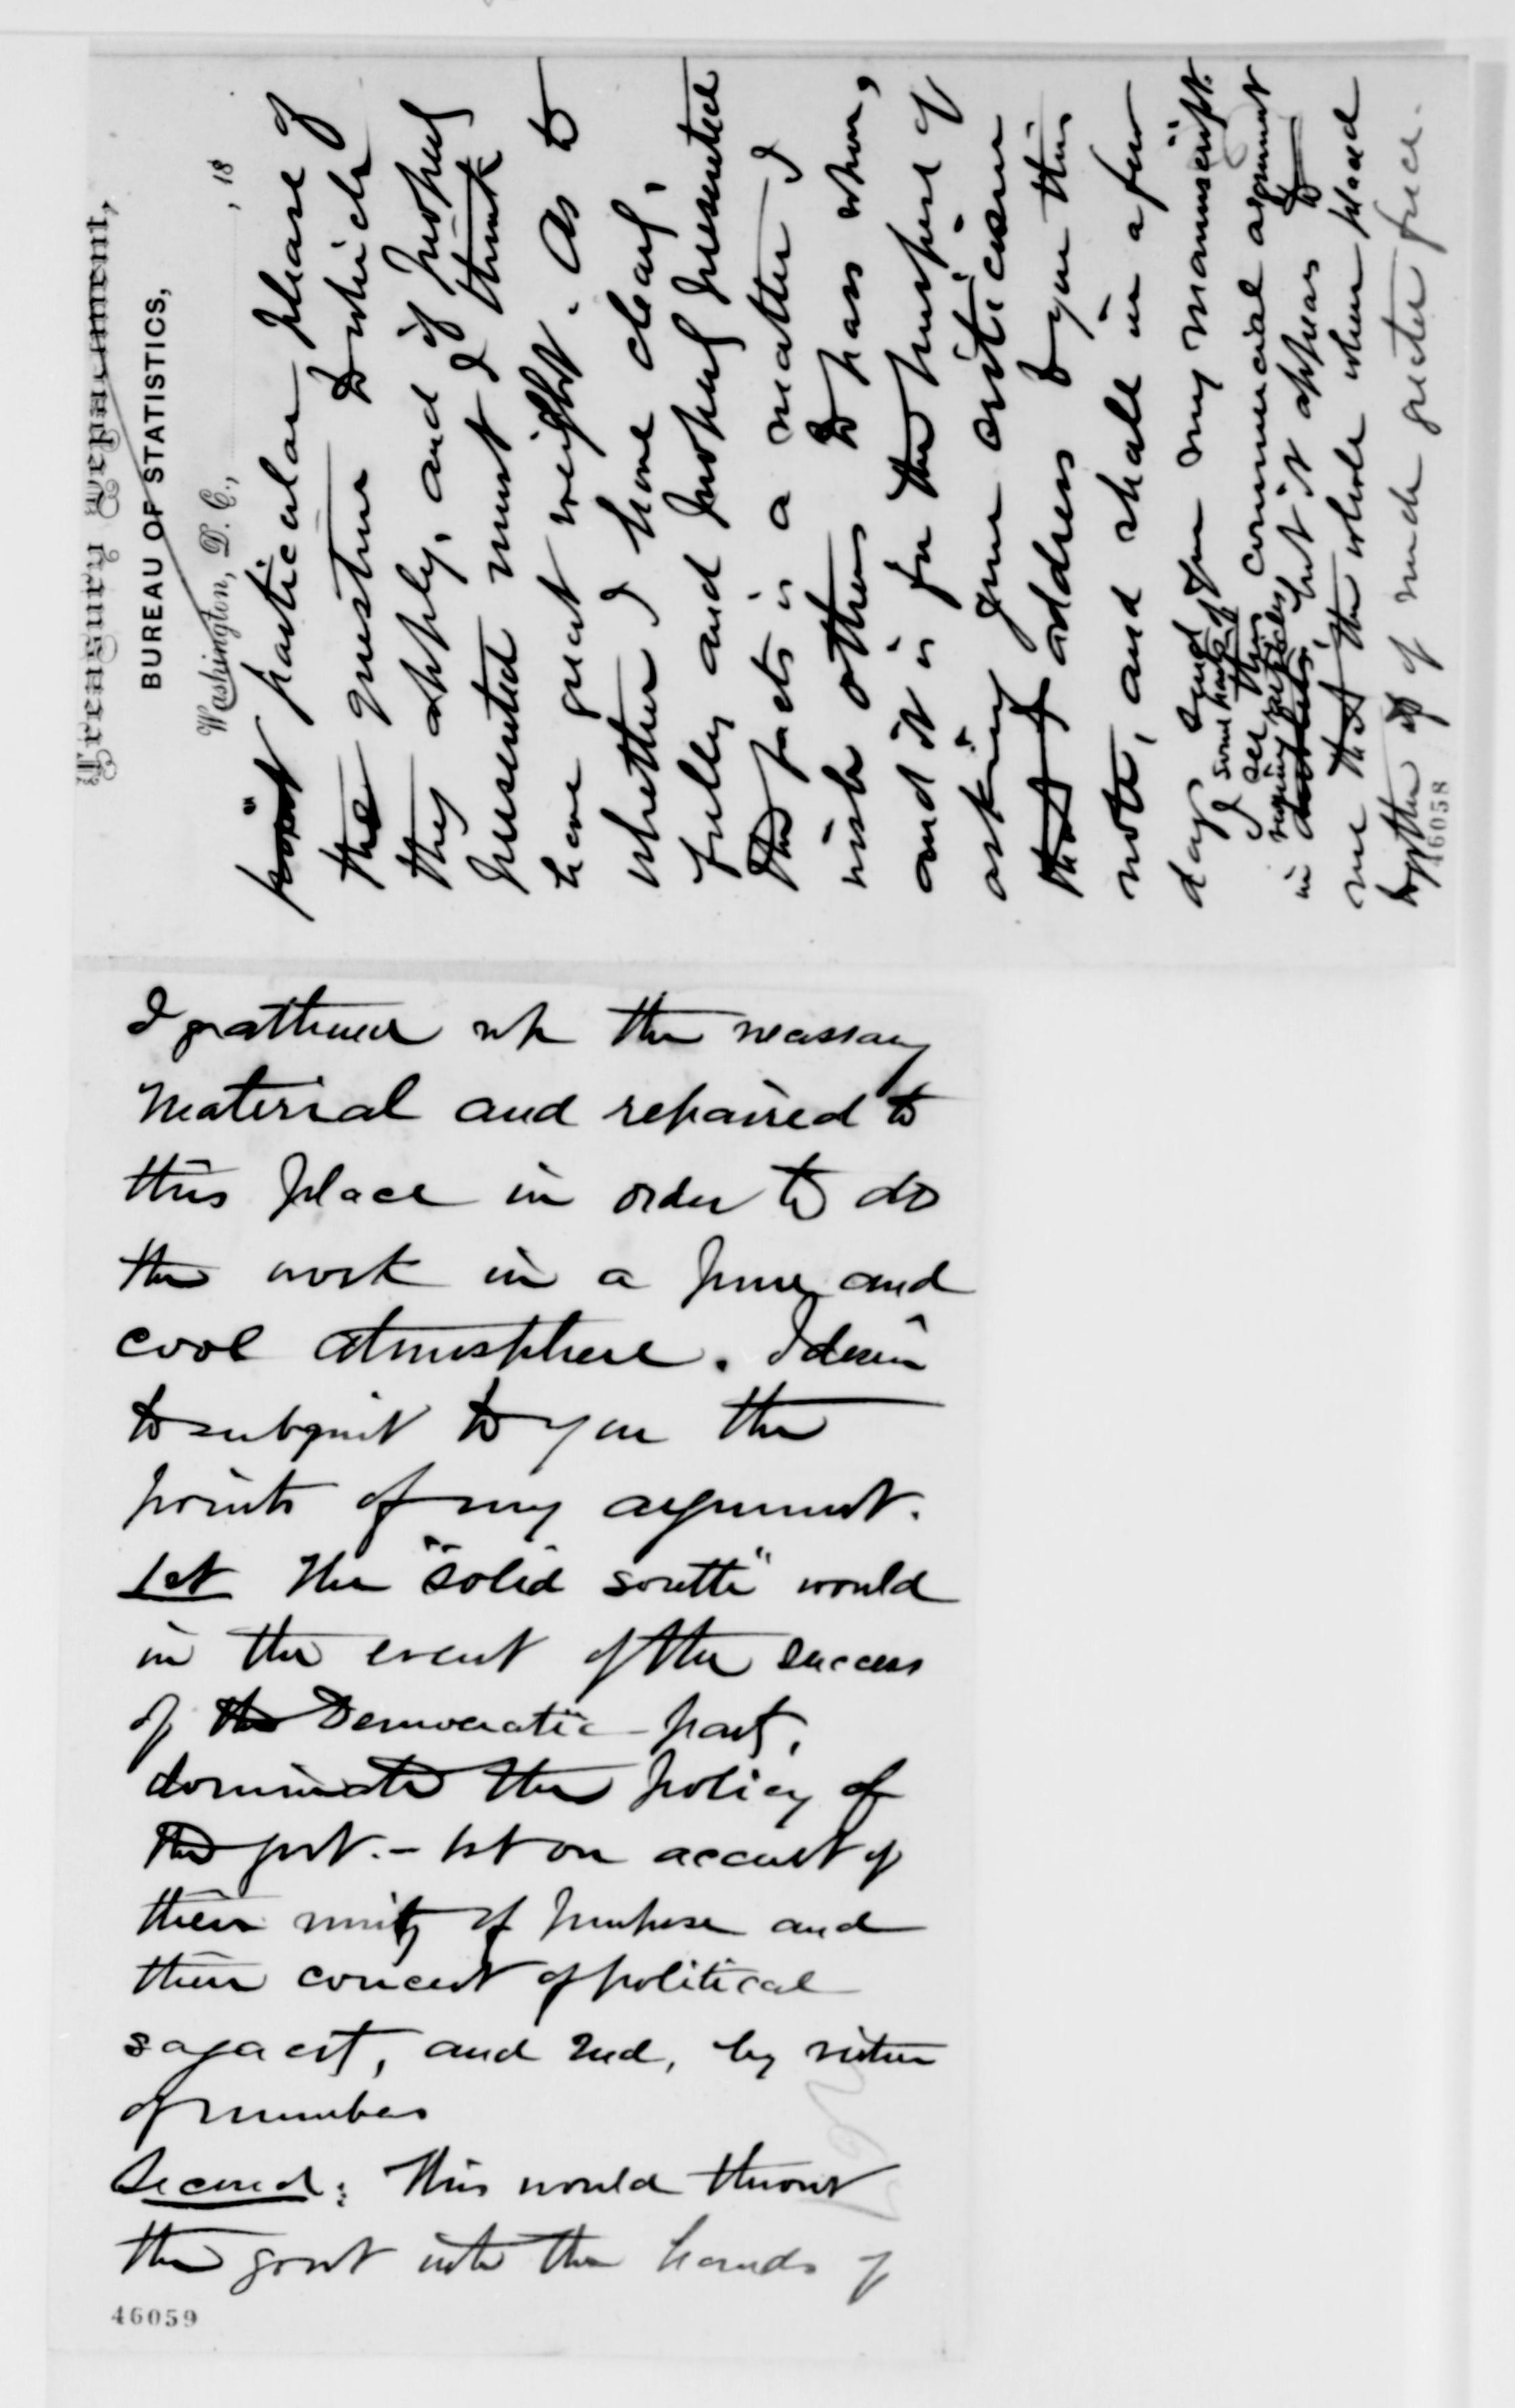 Treasury Department,
BUREAU OF STATISTICS,
Washington, D. C., , 18
point particular phase of
the question to which
they apply, and if properly
presented must I think
have great weight. As to
whether I have clearly,
fully and properly presented
the facts is a matter I
wish others to pass upon,
and it is for the purpose of
asking your criticism
that I address to you this
note, and shall in a few
days send you my manuscript.
I see this commercial argument
in but it appears to
me that the whole when placed
together is of much greater force.
46058
I gathered up the necessary
material and repaired to
this place in order to do
the work in a pure and
cool atmosphere. I desire
to submit to you the
points of my argument.
1st The "solid south" would
in the event of the success
of the Democratic party,
dominate the policy of
the govt. - 1st on account of
their unity of purpose and
their concert of political
sagacity, and 2nd, by virtue
of numbers
Second: This would throw
the govt into the hands of
46059